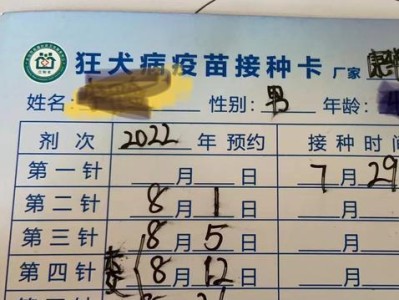 狂犬病疫苗接种卡 厂家 康华
姓名: 性别: 男 年龄:
剂次 2022 年预约 接种时间
第一针 月 日 7月29
第二针 8月1日
第三针 8月5日
第四针 8月12日